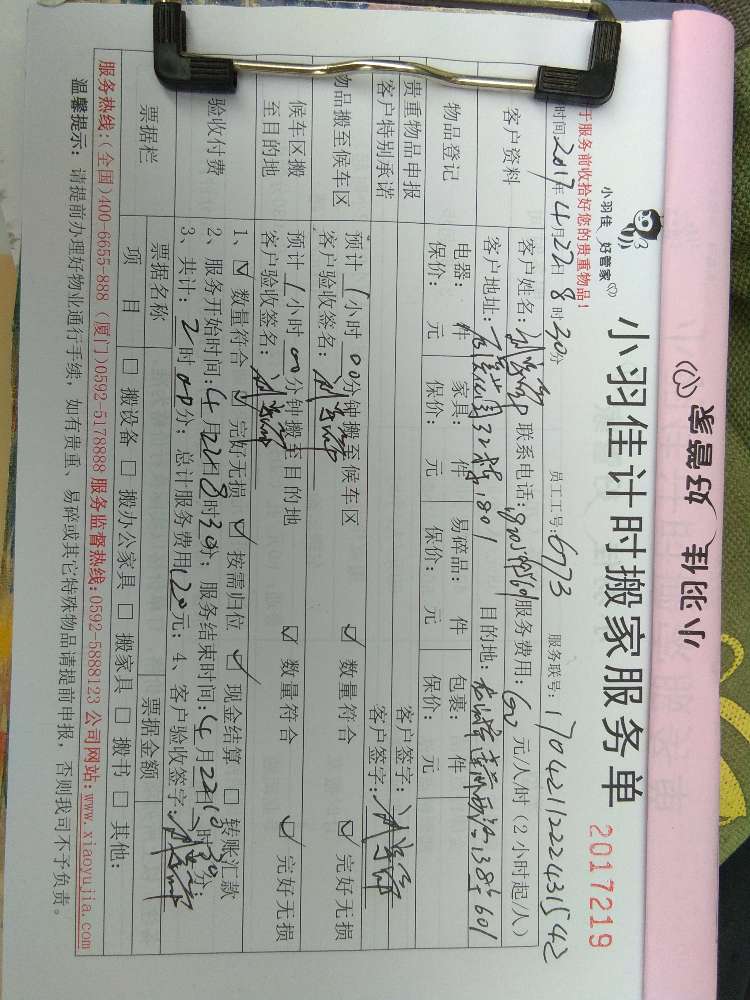 小羽佳 好管家
小羽佳 好管家
小羽佳计时搬家服务单
2017219
于服务前收拾好您的贵重物品!
时间2017年4月22日8时30分 员工工号:6773 服务联号:1704211222431542
客户资料
客户姓名: 联系电话: 服务费用:60元/人/时(2小时起/人)
客户地址: 32栋 1801 目的地: 138号601
物品登记
电器: 件 家具: 件 易碎品: 件 包裹: 件
保价: 元 保价: 元 保价: 元 保价: 元
贵重物品申报 客户签字:
客户特别承诺 客户签字:
物品搬至候车区
预计1小时00分钟搬至候车区 ☑ 数量符合 ☑ 完好无损
客户验收签名:
候车区搬至目的地
预计1小时00分钟搬至目的地 ☑ 数量符合 ☑ 完好无损
客户验收签名:
验收付费
1、☑ 数量符合 ☑ 完好无损 ☑ 按需归位 ☑ 现金结算 □ 转账汇款
2、服务开始时间:4月22日8时30分; 服务结束时间:4月22日 时30分;
3、共计:2时00分; 总计服务费用120元; 4、客户验收签字:
票据栏
票据名称 票据金额
项 目 □ 搬设备 □ 搬办公家具 □ 搬家具 □ 搬书 □ 其他:
服务热线:(全国)400-6655-888 (厦门)0592-5178888 服务监督热线:0592-5888123 公司网站:www.xiaoyujia.com
温馨提示: 请提前办理好物业通行手续, 如有贵重、易碎或其它特殊物品请提前申报, 否则我司不予负责。